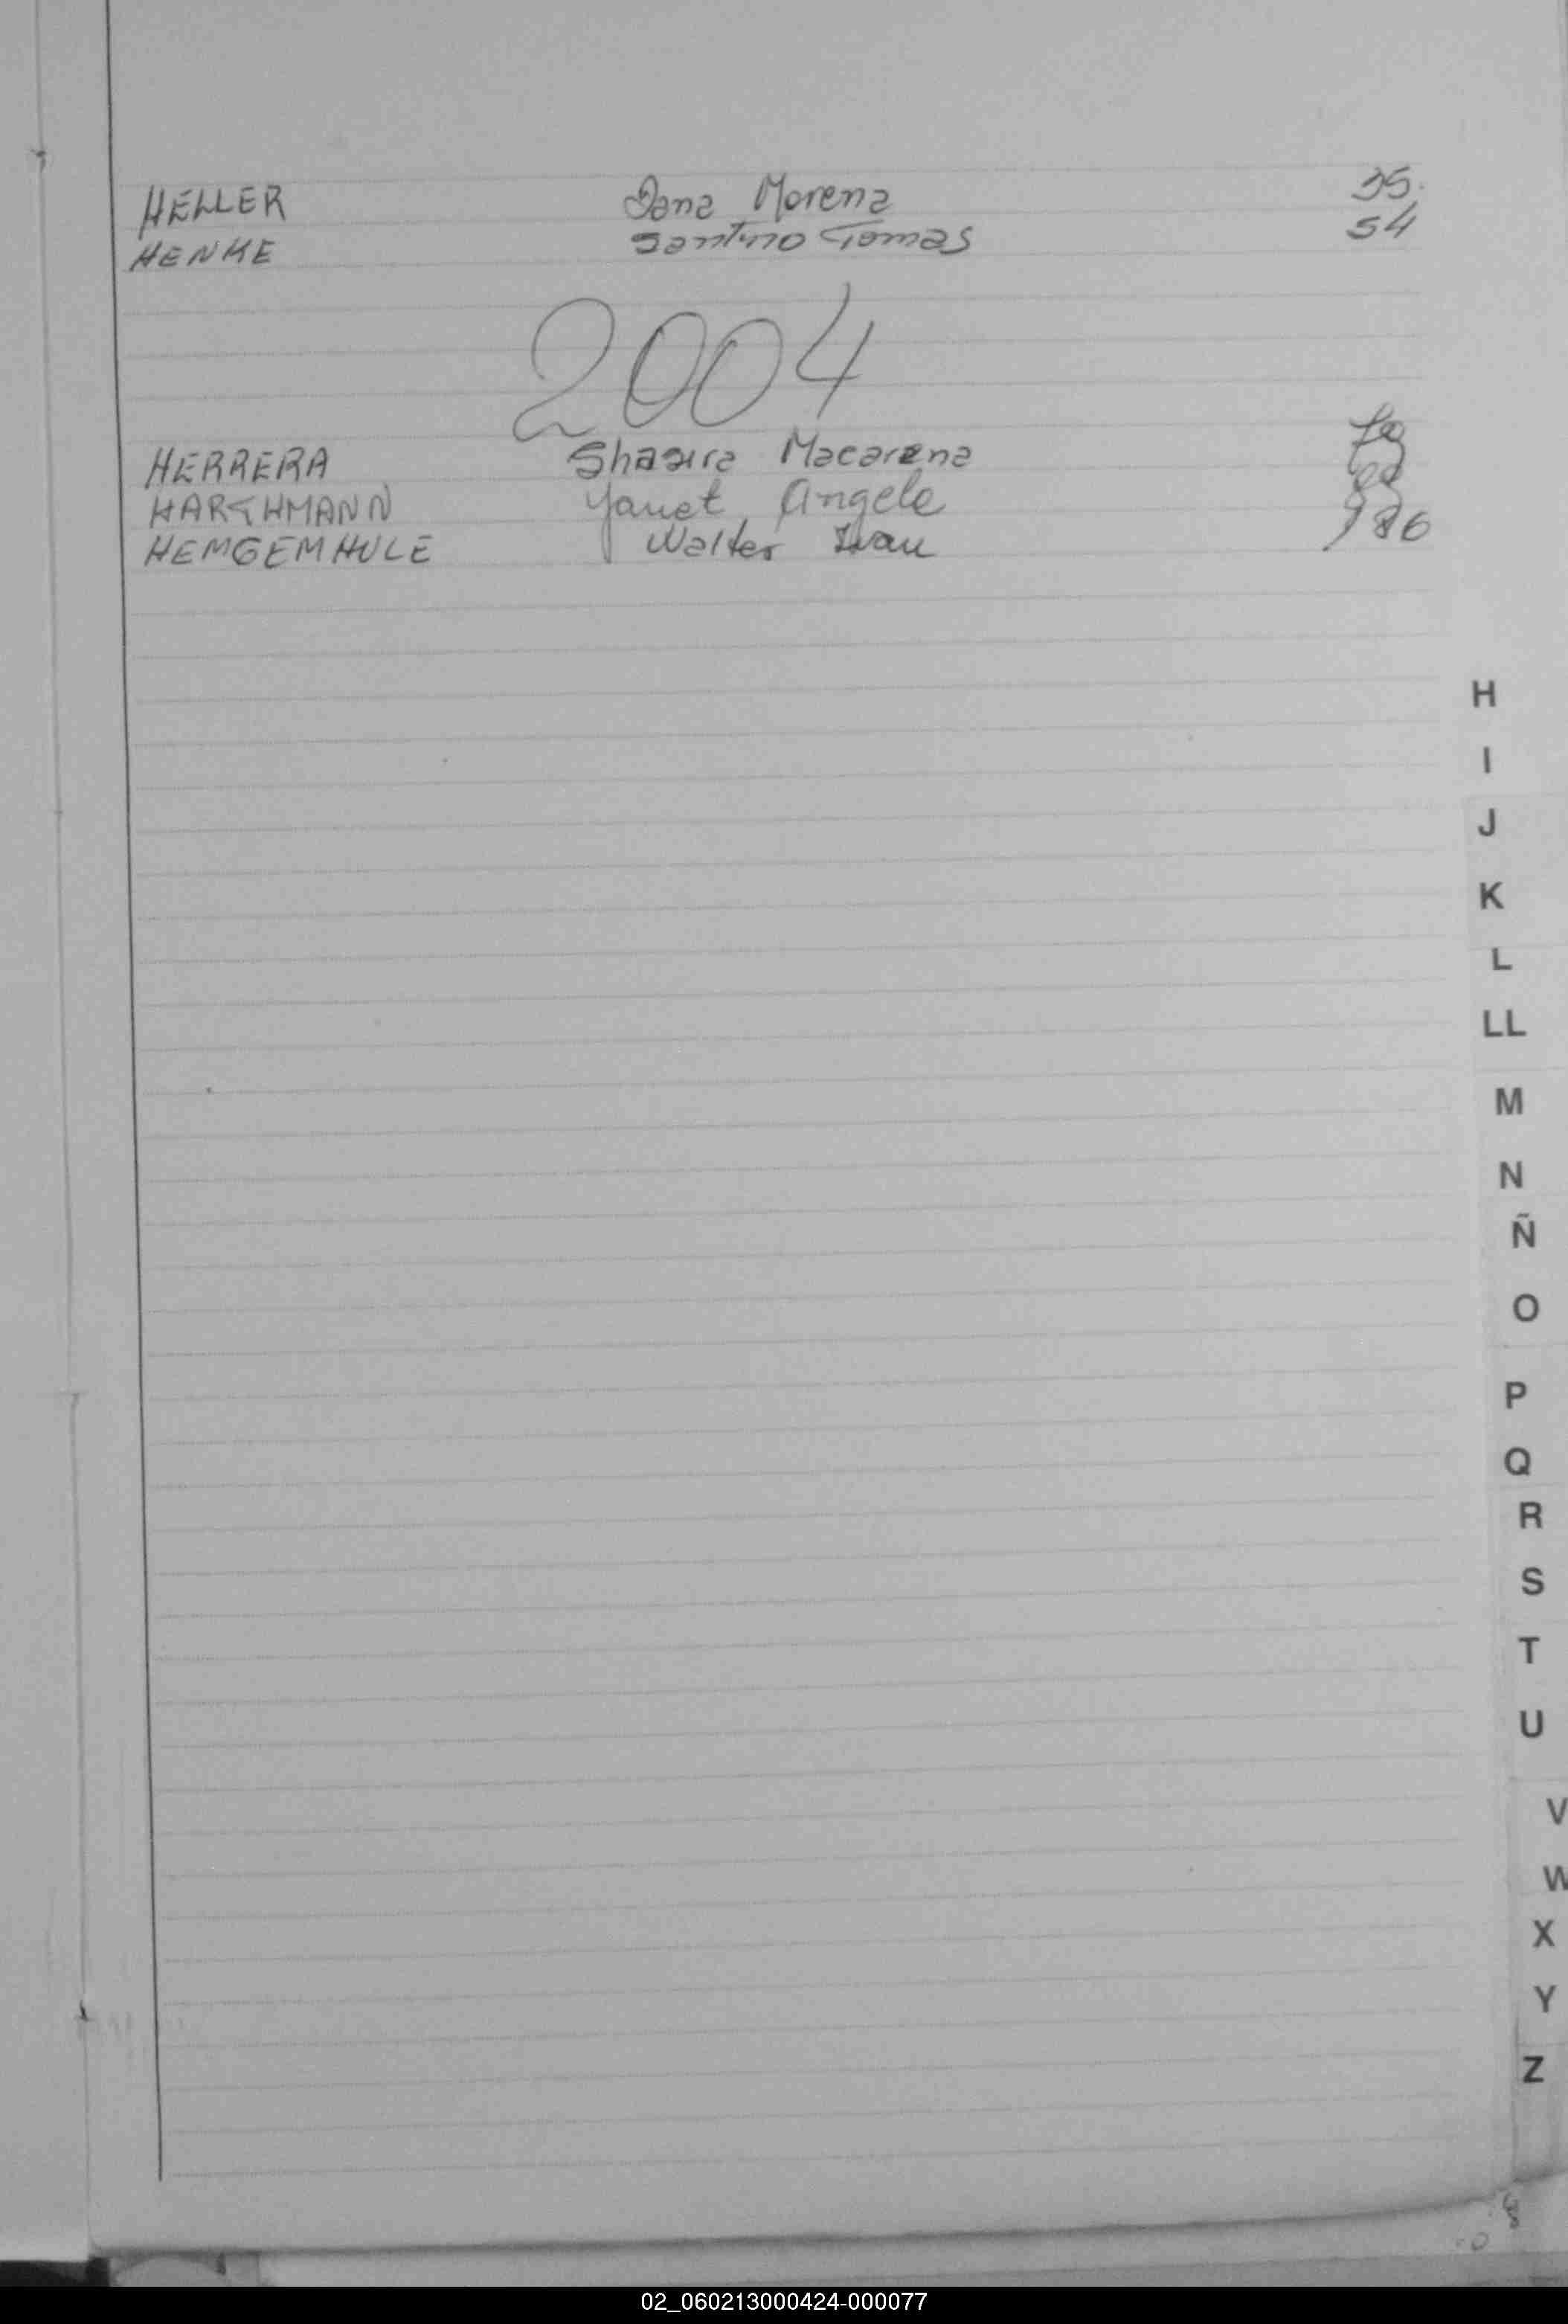 HELLER Dana Morena 35.
HENKE Santino Tomas 54
2004
HERRERA Macarena
HARTHMANN Yanet Angele
HEMGEMHULE Walter Ivan 186
H
I
J
K
L
LL
M
N
Ñ
O
P
Q
R
S
T
U
V
W
X
Y
Z
02_060213000424-000077